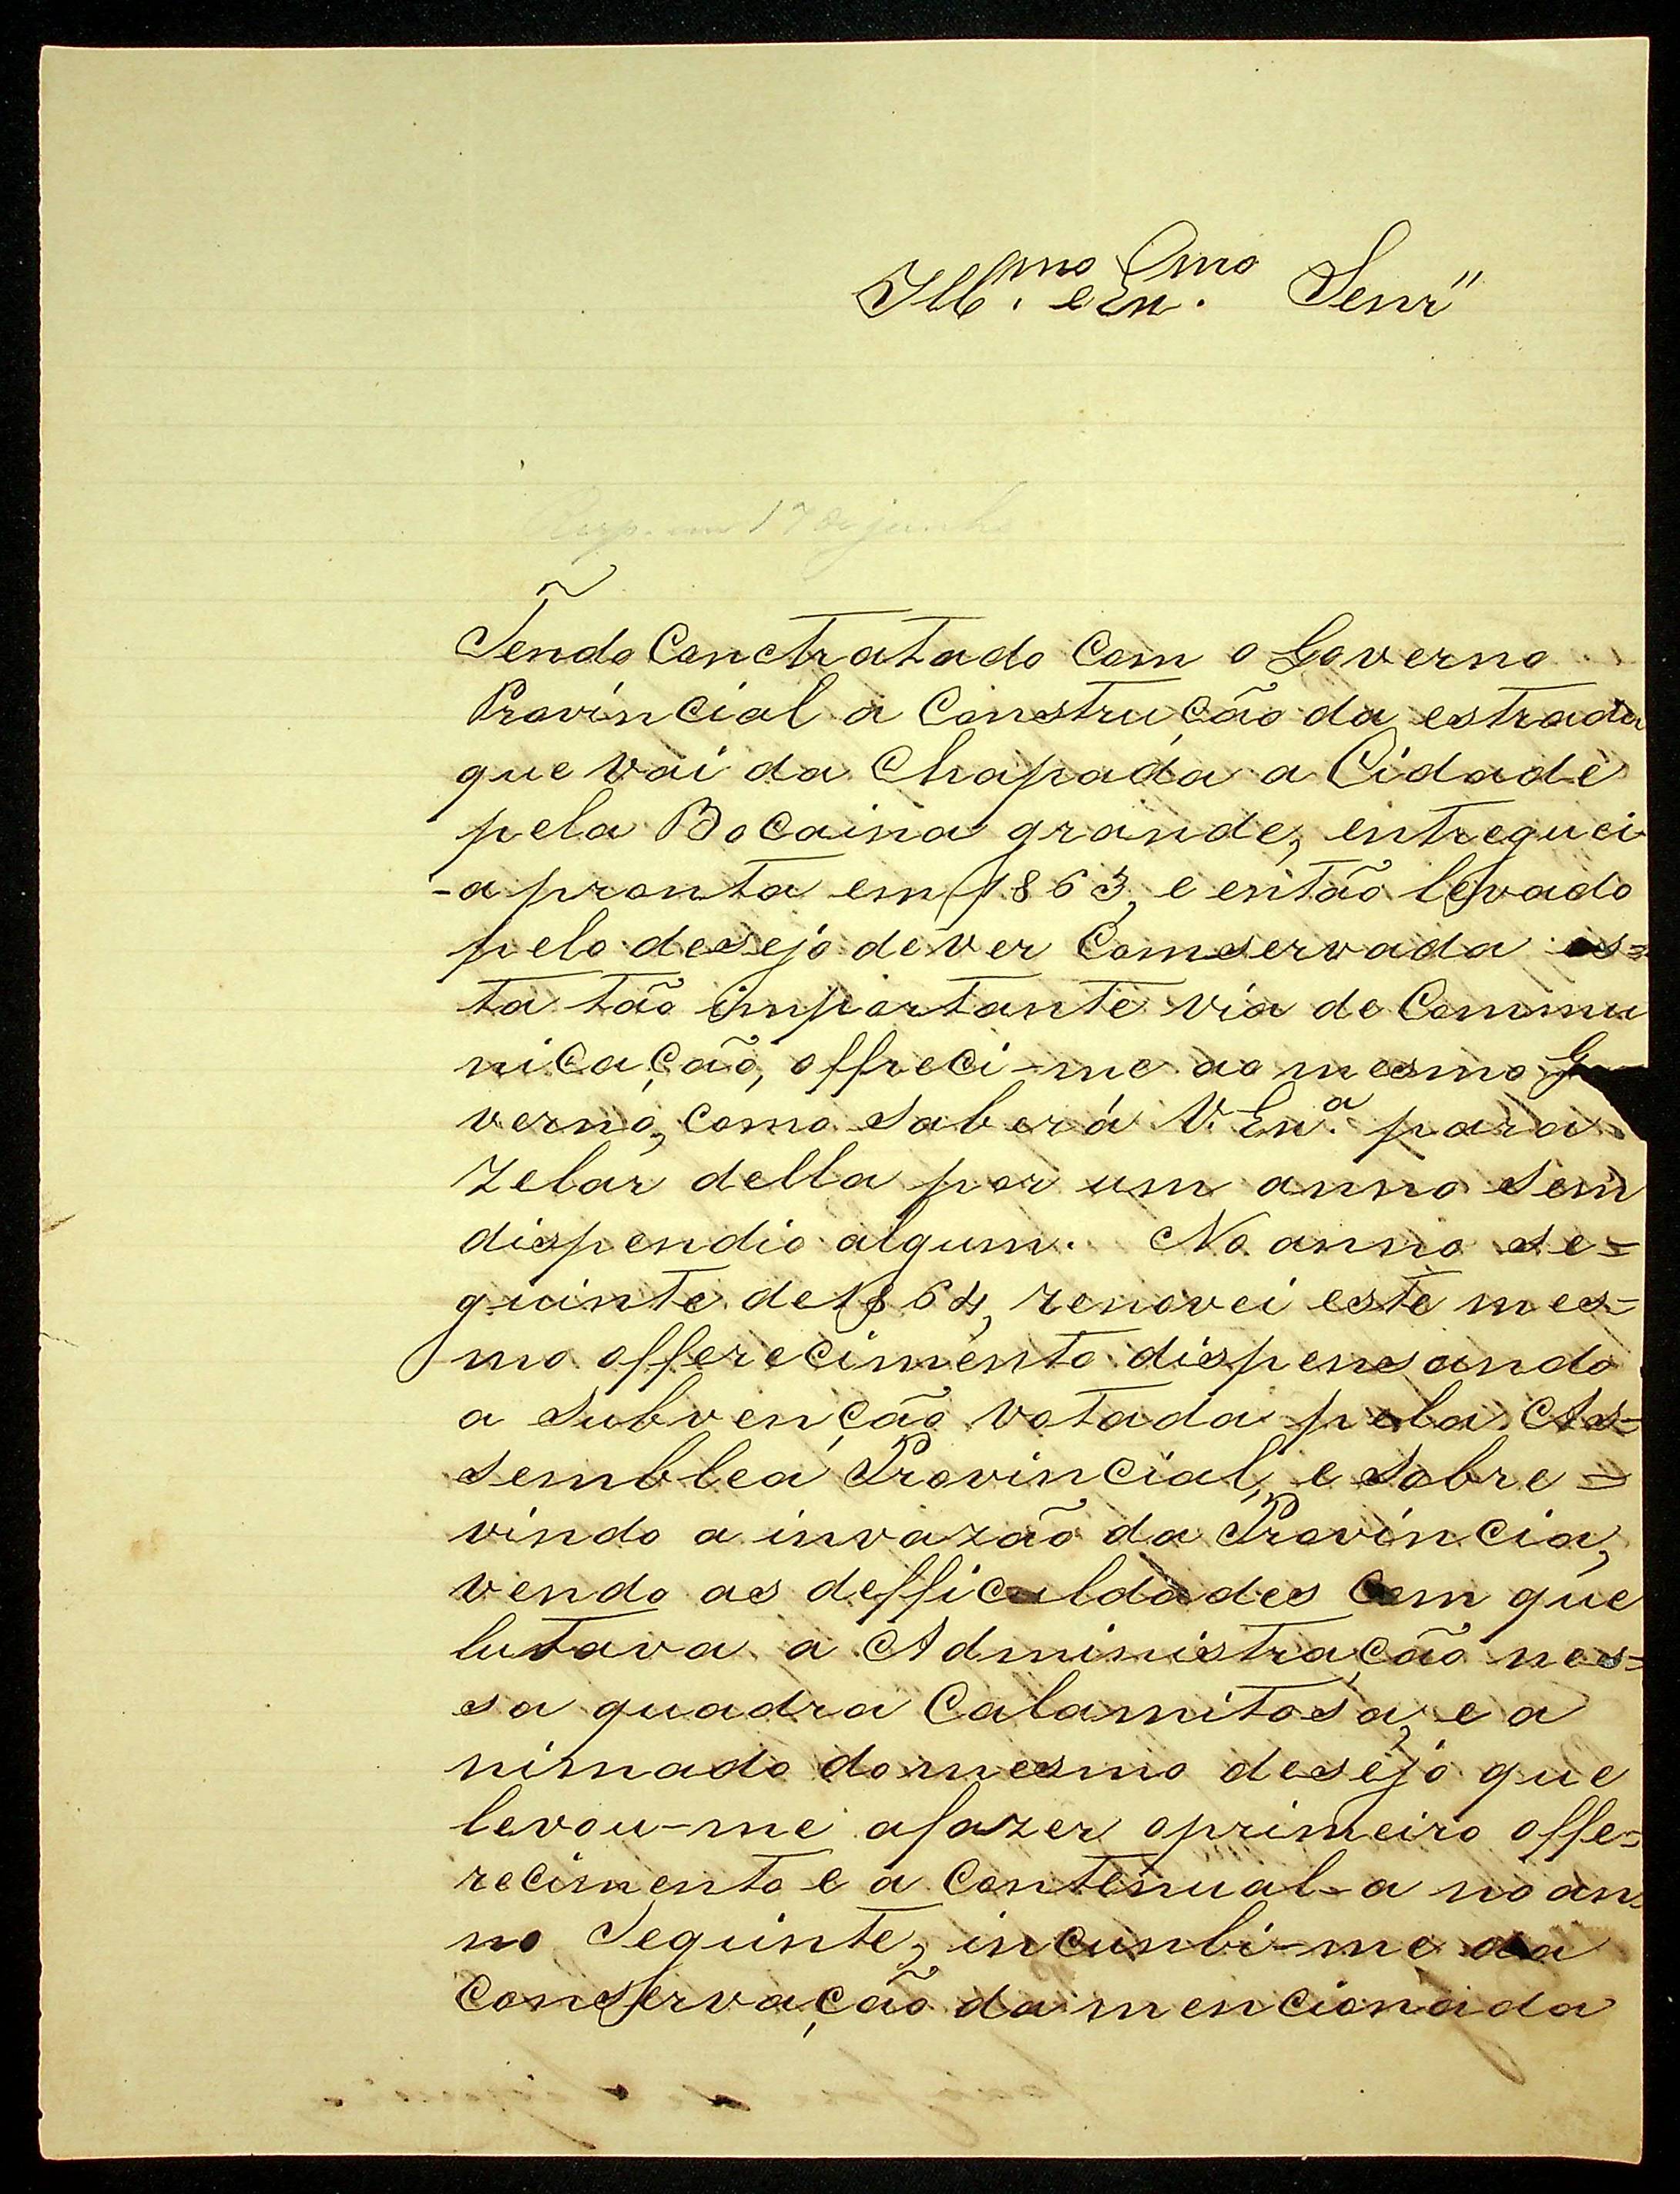 Ill.mo e Ex.mo Senr"
Resp. em 17 de junho
Tendo Conctratado com o Governo
Provincial a Construção da estrada
que vai da Chapada a Cidade
pela Bocaina grande, entreguei
-a pronta em 1863, e então levado
pelo desejo de ver Comservada es=
ta tão importante via de Commu
nicação, offreci-me ao mesmo Go
verno, como saberá V. Ex.a para
Zelar della por um anno sem
dispendio algum. No anno se=
guinte de 1864, renovei este mes=
mo offerecimento dispensando
a subvenção votada pela As=
semblea Provincial, e sobre=
vindo a invazão da Provincia,
vendo as defficuldades com que
lutava a Administração nes=
sa quadra Calamitosa, e a
nimado do mesmo desejo que
levou-me a fazer o primeiro offe=
recimento e a Contenual-a no an
no Seguinte, incunbi-me da
Conservação da mencionada